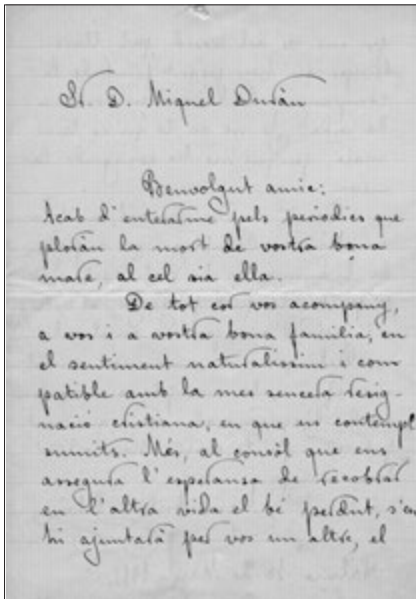 Sr. D. Miquel Durán
Benvolgut amic:
Acab d'enterarme pels periodics que
ploràn la mort de vostra bona
mare, al cel sia ella.
De tot cor vos acompany,
a vos i a vostra bona familia, en
el sentiment naturalissim i com
patible amb la mes sencera resig-
nació cristiana, en que us contempl
sumits. Més, al consòl que ens
assegura l'esperansa de recobrar
en l'altra vida el bé perdut, s'en
hi ajuntarà per vos un altre, el